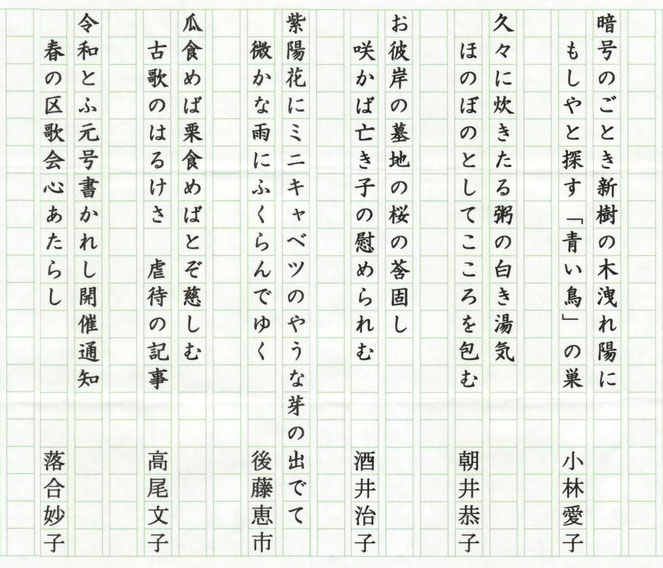 暗号のごとき新樹の木洩れ陽に
もしやと探す「青い鳥」の巣
小林愛子
久々に炊きたる粥の白き湯気
ほのぼのとしてこころを包む
朝井恭子
お彼岸の墓地の桜の莟固し
咲かば亡き子の慰められむ
酒井治子
紫陽花にミニキャベツのやうな芽の出でて
微かな雨にふくらんでゆく
後藤恵市
瓜食めば栗食めばとぞ慈しむ
古歌のはるけさ　虐待の記事
高尾文子
令和とふ元号書かれし開催通知
春の区歌会心あたらし
落合妙子